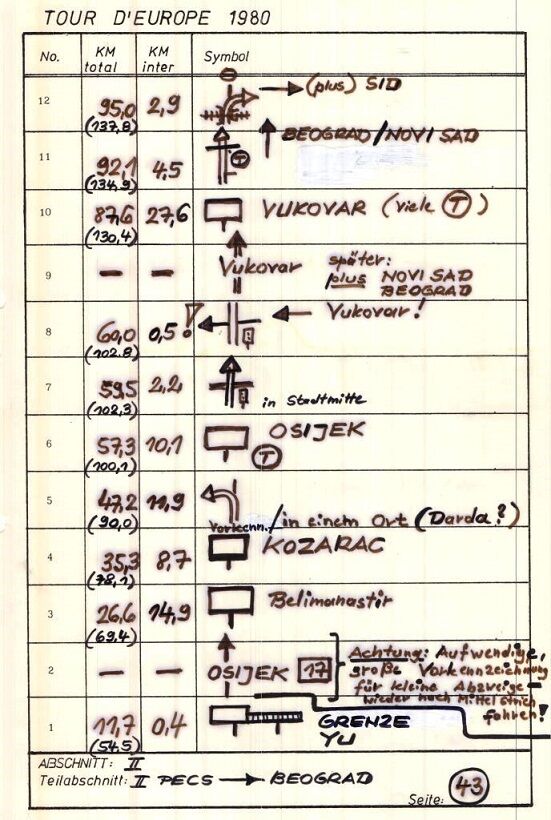 TOUR D'EUROPE 1980
No. KM total KM inter Symbol
12 95,0 (137,8) 2,9 → (plus) SID
BEOGRAD/NOVI SAD
11 92,1 (134,9) 4,5 T
10 87,6 (130,4) 27,6 VUKOVAR (viele T)
9 — — Vukovar später:
plus NOVI SAD
BEOGRAD
8 60,0 (102,8) 0,5 ! ← Vukovar!
7 59,5 (102,3) 2,2 in Stadtmitte
6 57,3 (100,1) 10,1 OSIJEK
T
5 47,2 (90,0) 11,9
Vorkenn./in einem Ort (Darda?)
4 35,3 (78,1) 8,7 KOZARAC
3 26,6 (69,4) 14,9 Belimanastir
2 — — OSIJEK 17 Achtung: Aufwendige,
große Vorkennzeichnung
für kleine Abzweige —
wieder nach Mittelstrich
fahren!
1 11,7 (54,5) 0,4 GRENZE
YU
ABSCHNITT: II
Teilabschnitt: II PECS → BEOGRAD
Seite: 43